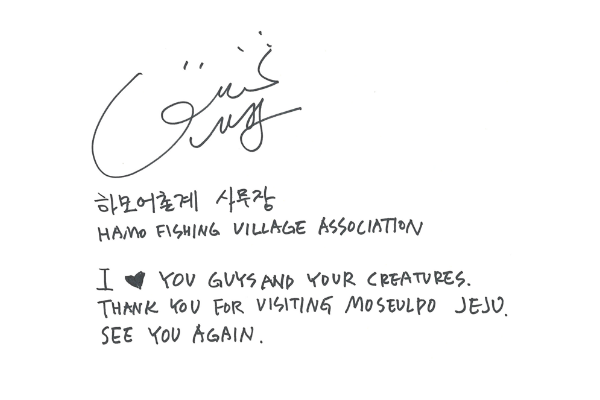 하모어촌계 사무장
HAMO FISHING VILLAGE ASSOCIATION
I ♥ YOU GUYS AND YOUR CREATURES.
THANK YOU FOR VISITING MOSEULPO JEJU.
SEE YOU AGAIN.